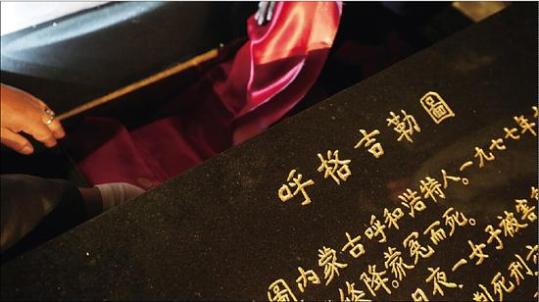 呼格吉勒圖
圖内蒙古呼和浩特人。一九七七年
降蒙冤而死。
日夜一女子被害
判死刑